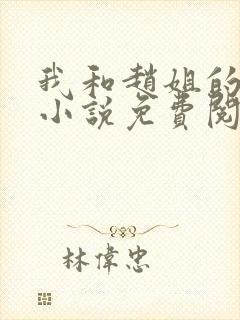 我和趙姐的
小說免費閱
林偉忠